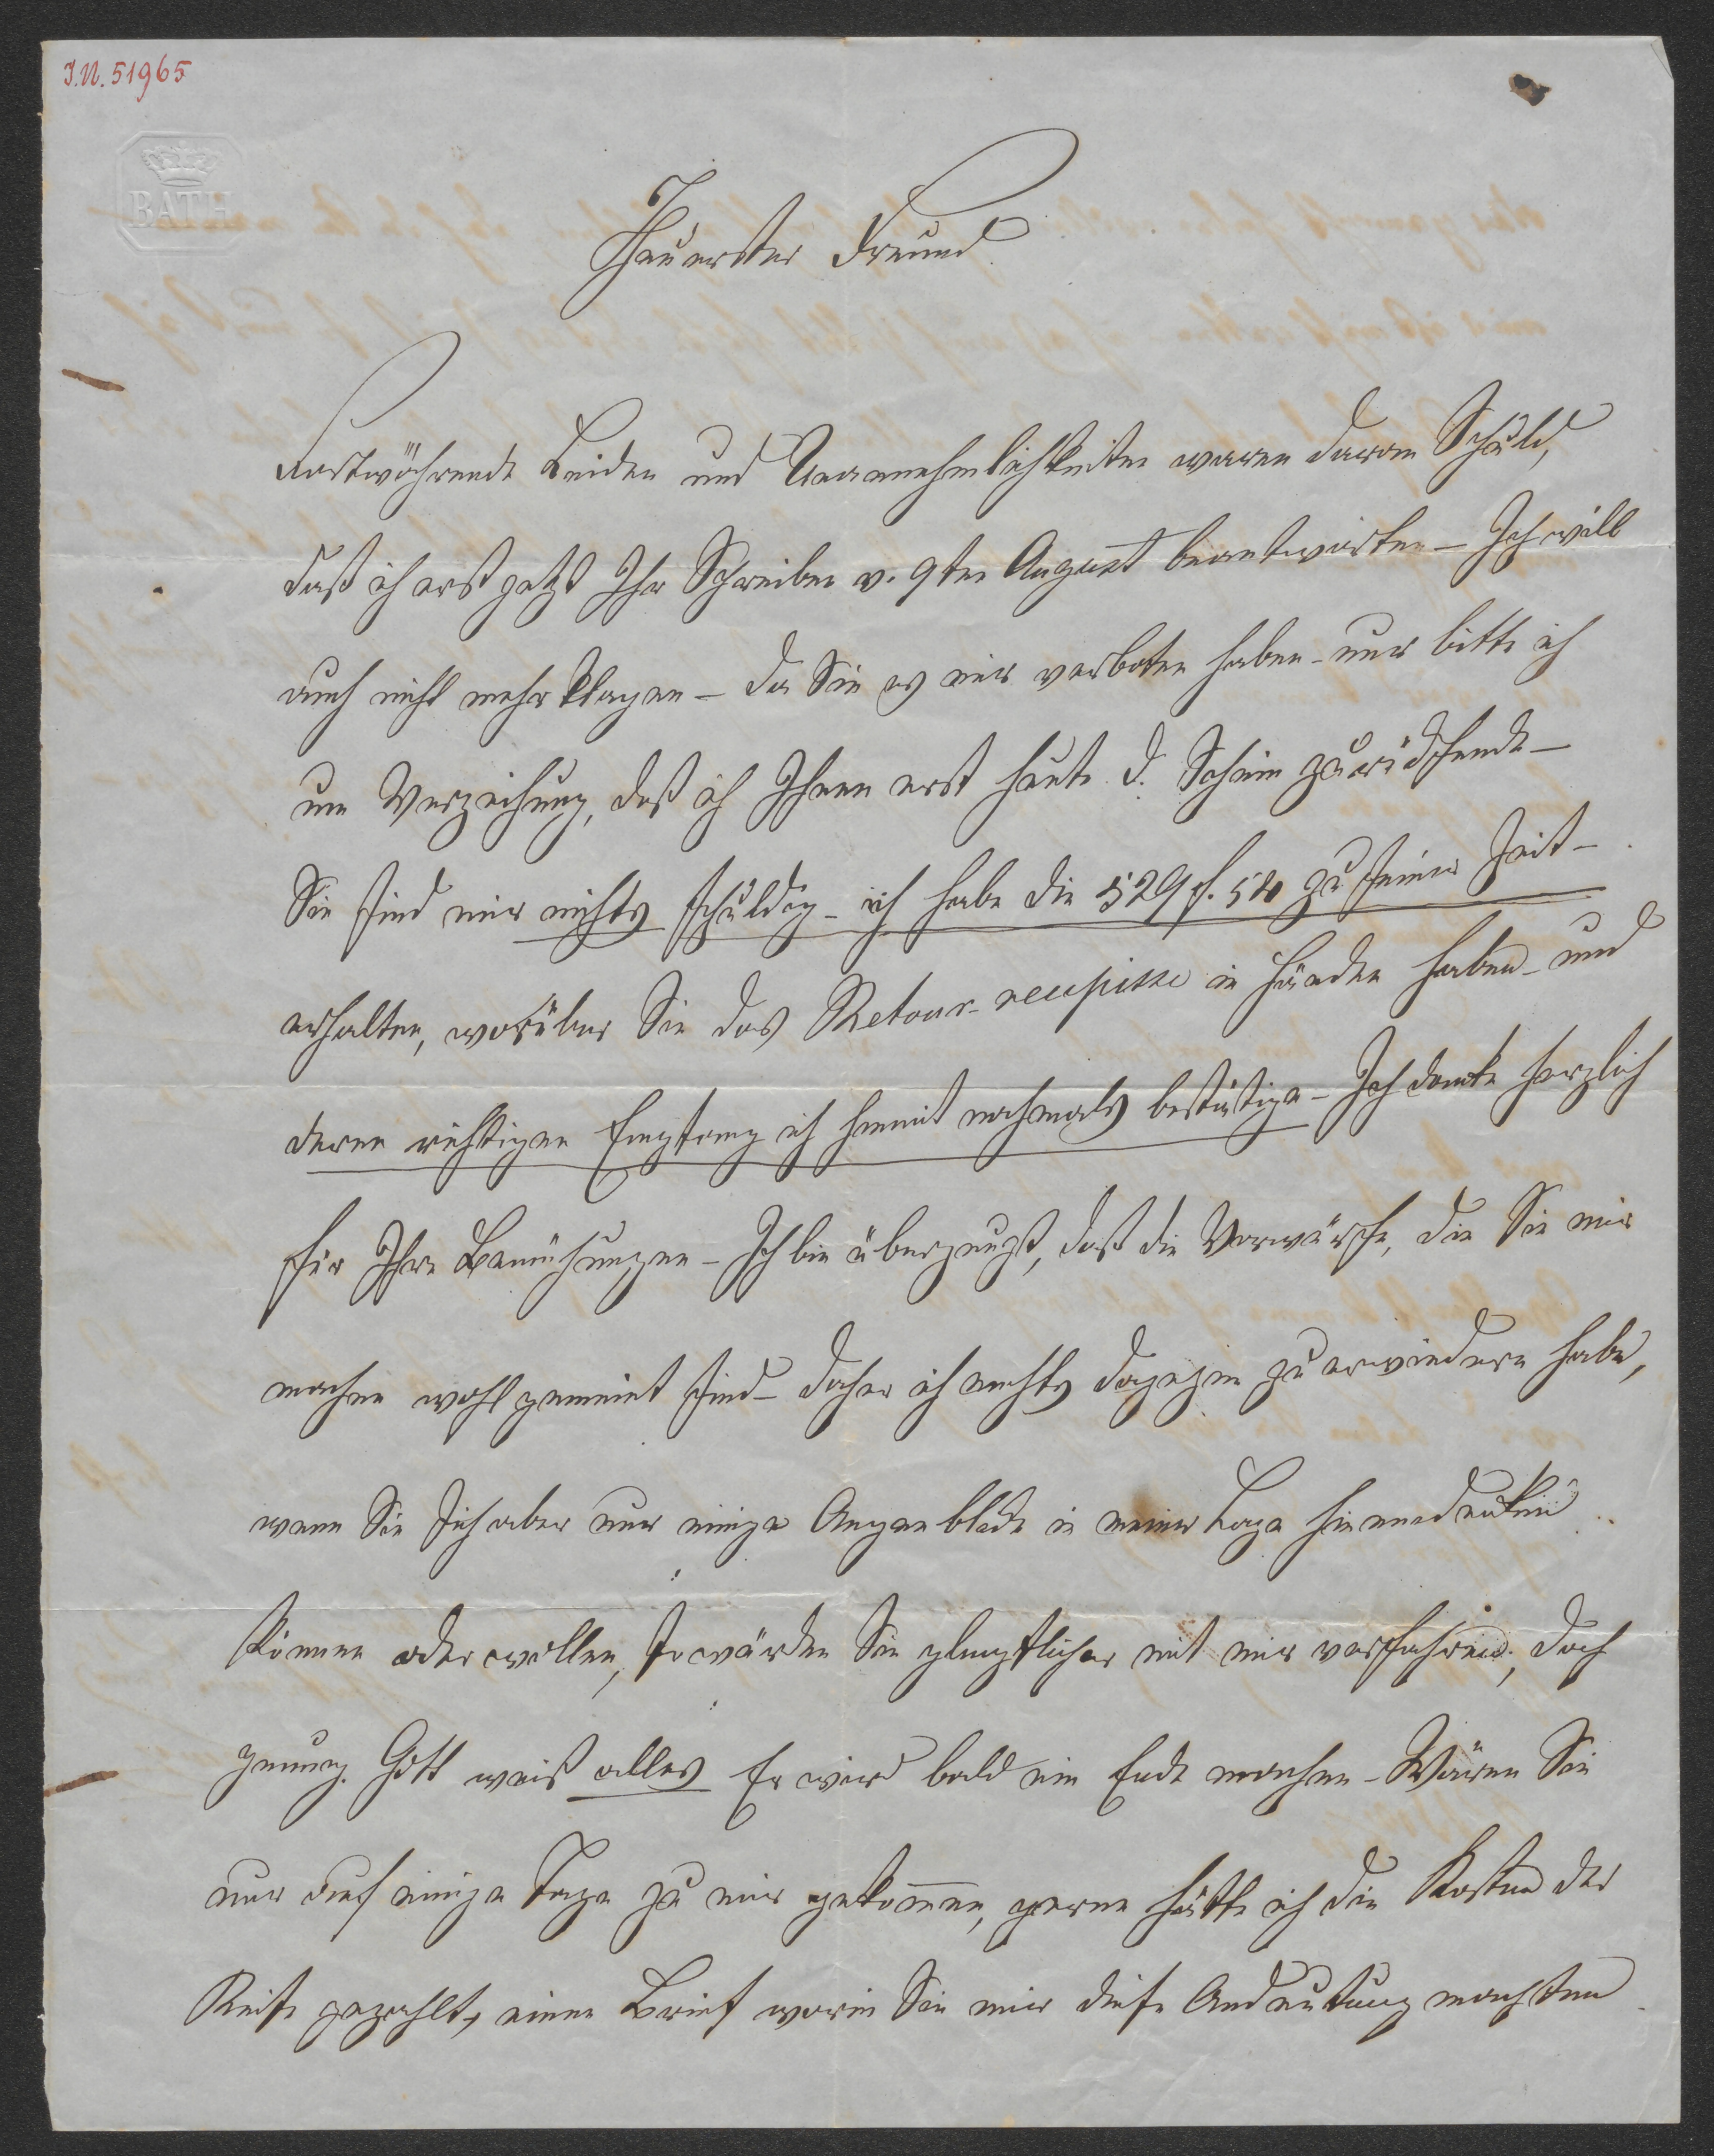 I.N. 51965
BATH
Theuerster Freund
Fortwährende Leiden und Unannehmlichkeiten waren daran Schuld,
daß ich erst jetzt Ihr Schreiben v. 9ten August beantworte – Ich will
auch nicht mehr klagen – da Sie es mir verboten haben – nur bitte ich
um Verzeihung, daß ich Ihnen erst heute d. Schein zurücksende –
Sie sind mir nichts schuldig – ich habe die 529 f. 50 zu seiner Zeit –
erhalten, worüber Sie das Retour-recepisse in Händen haben – und
deren richtigen Empfang ich hiemit nochmals bestätige – Ich danke herzlich
für Ihre Bemühungen – Ich bin überzeugt, daß die Vorwürfe, die Sie mir
machen wohlgemeint sind – daher ich nichts dagegen zu erwiedern habe,
wenn Sie sich aber nur einige Augenblicke in meine Lage hineindenken
können oder wollen, so würden Sie glimpflicher mit mir verfahren, doch
genung. Gott weiß alles Er wird bald ein Ende machen – Wären Sie
nur auf einige Tage zu mir gekom̅en, gerne hätte ich die Kosten der
Reise gezahlt, einen Brief worin Sie mir diese Andeutung machten